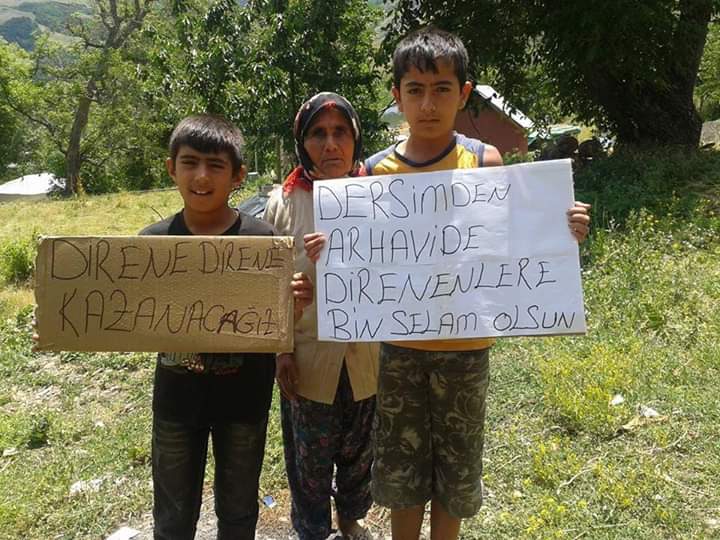 DİRENE DİRENE
KAZANACAĞIZ
DERSİMDEN
ARHAVİDE
DİRENENLERE
BİN SELAM OLSUN